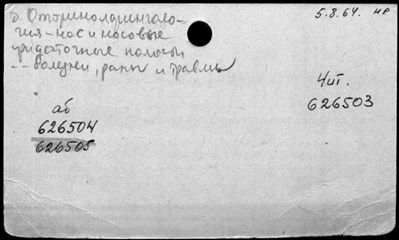 5.8.64. нр
б. Оторинолдингало-
гия - нос и носовые
придаточные полосы
-- болезни, раны и травмы
Чит.
626503
аб
626504
626505